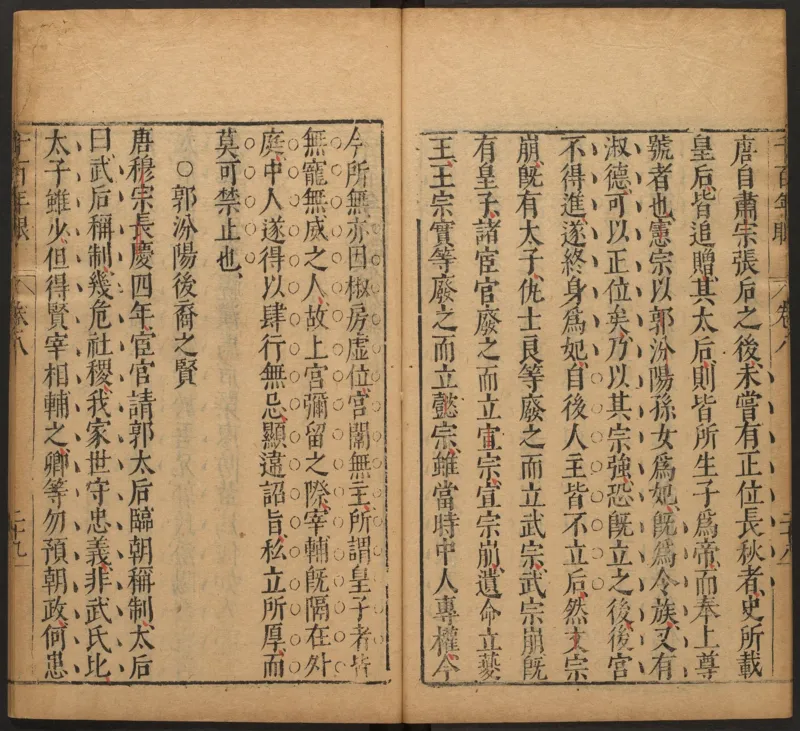 唐自肅宗張后之後未嘗有正位長秋者史所載
皇后皆追贈其太后則皆所生子爲帝而奉上尊
號者也憲宗以郭汾陽孫女爲妃旣爲令族又有
淑德可以正位矣乃以其宗強恐旣立之後後宮
不得進遂終身爲妃自後人主皆不立后然文宗
崩旣有太子仇士良等廢之而立武宗武宗崩旣
有皇子諸宦官廢之而立宣宗宣宗崩遺命立夔
王王宗實等廢之而立懿宗雖當時中人專權今
千百年眼
卷八
二十八
今所無亦因椒房虛位宮闈無主所謂皇子者皆
無寵無威之人故上宮彌留之際宰輔旣隔在外
庭中人遂得以肆行無忌顯違詔旨私立所厚而
莫可禁止也
○郭汾陽後裔之賢
唐穆宗長慶四年宦官請郭太后臨朝稱制太后
曰武后稱制幾危社稷我家世守忠義非武氏比
太子雖少但得賢宰相輔之卿等勿預朝政何患
千百年眼
卷八
二十九